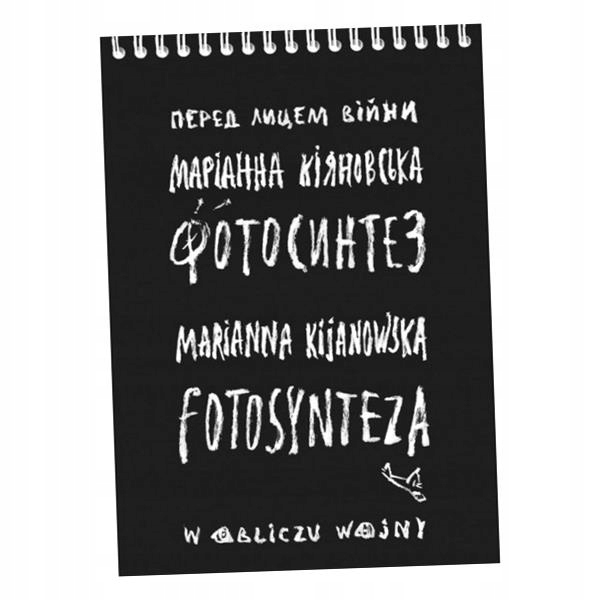 ПЕРЕД ЛИЦЕМ ВІЙНИ
МАРІАННА КІЯНОВСЬКА
ФОТОСИНТЕЗ
MARiANNA KIJANOWSKA
FOTOSYNTEZA
W OBLICZU WOJNY